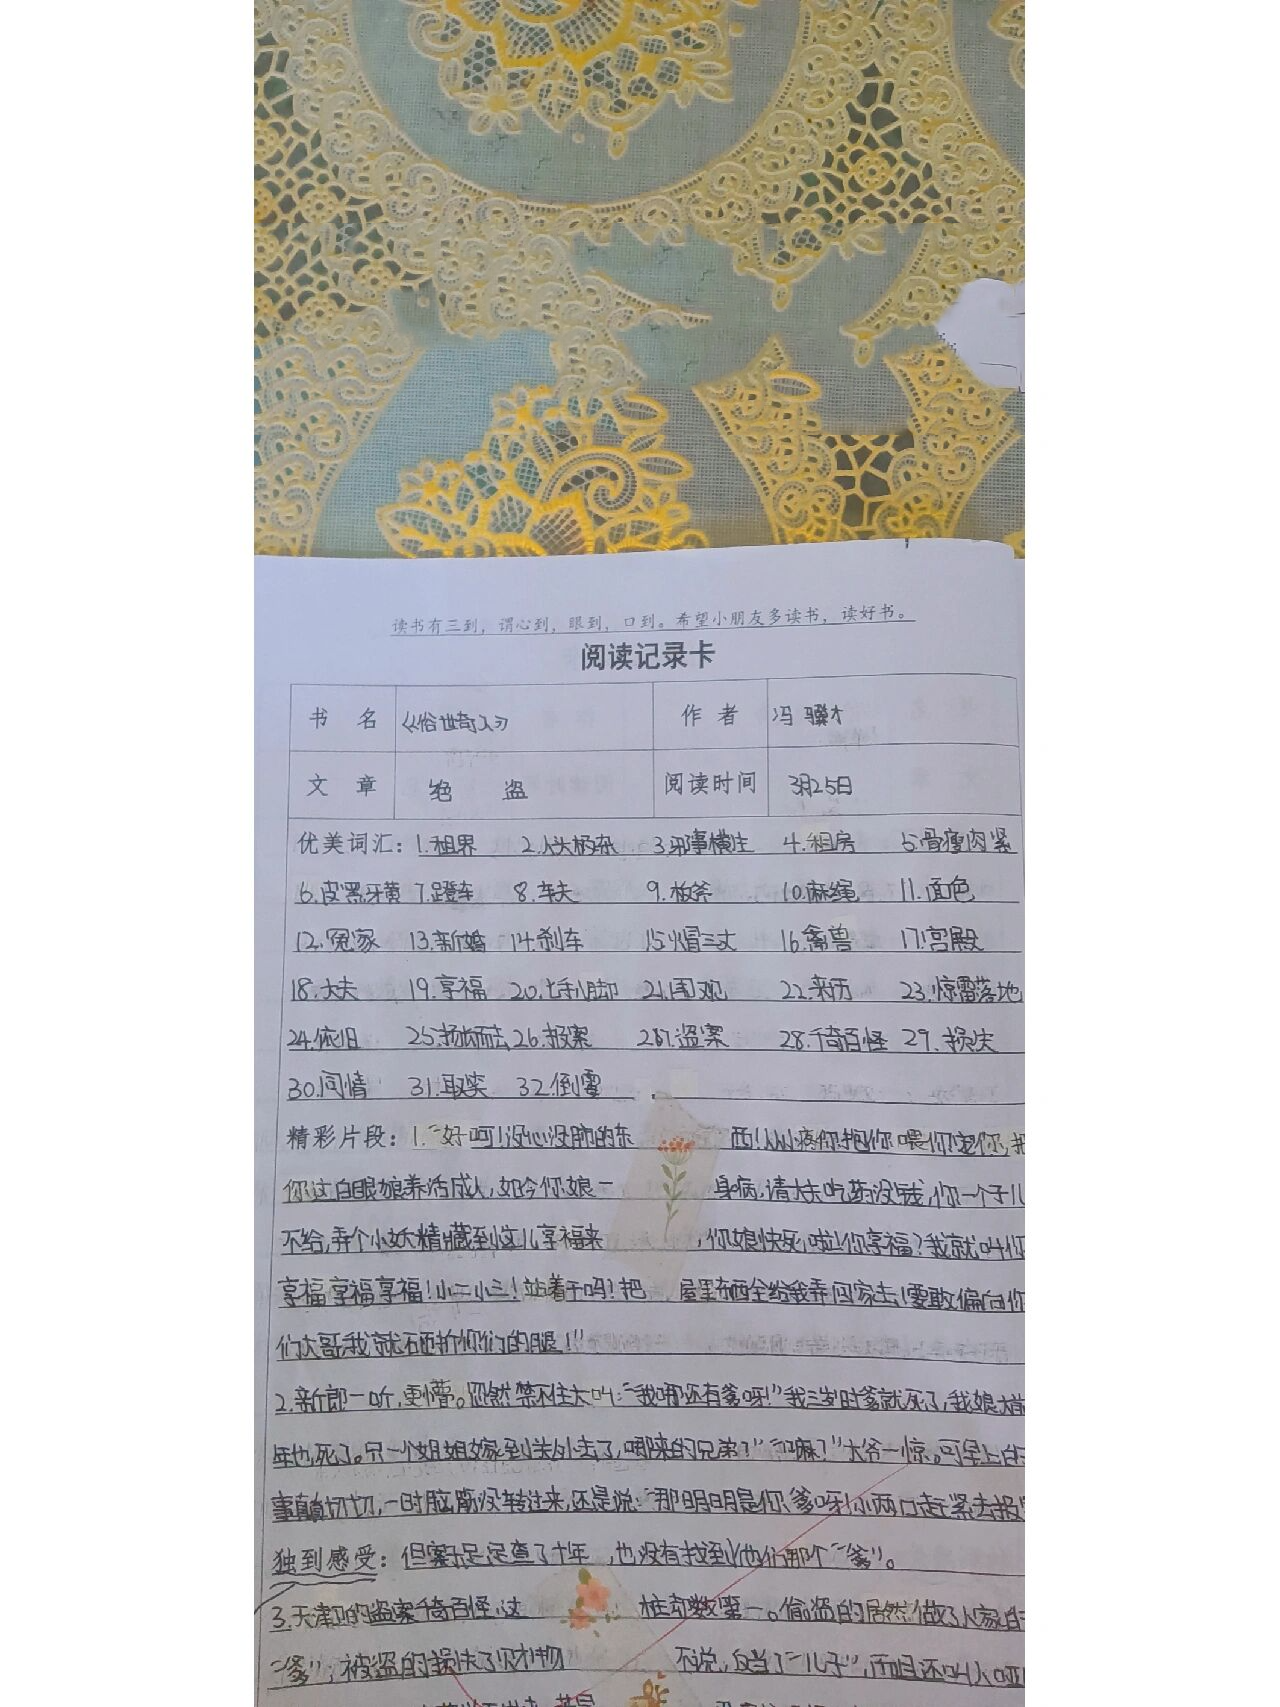 读书有三到，谓心到，眼到，口到。希望小朋友多读书，读好书。
阅读记录卡
书 名 《俗世奇人》 作 者 冯骥才
文 章 绝 盗 阅读时间 3月25日
优美词汇：1.租界 2.人头杨杂 3.邪事横生 4.租房 5.骨瘦肉紧
6.皮黑牙黄 7.蹬车 8.车夫 9.板斧 10.麻绳 11.面色
12.冤家 13.新婚 14.刹车 15.火冒三丈 16.禽兽 17.宫殿
18.大夫 19.享福 20.七手八脚 21.围观 22.来历 23.惊雷落地
24.依旧 25.扬长而去 26.报案 27.盗案 28.千奇百怪 29.损失
30.同情 31.取笑 32.倒霉
精彩片段：1.“好呵！没心没肺的东西！从小疼你抱你喂你宠你，把
你这白眼狼养活成人，如今你娘一身病，请大夫吃药没钱，你一个子儿
不给，弄个小妖精藏到这儿享福来，你娘快死啦！你享福？我就叫你
享福享福享福！小二小三！站着干吗！把屋里东西全给我弄回家去！要敢偏向你
们大哥，我就砸折你们的腿！”
2.新郎一听，更懵。忽然禁不住大叫：“我哪还有爹呀！”我三岁时爹就死了，我娘大前
年也死了。只一个姐姐嫁到关外去了，哪来的兄弟？” “嘛？”大爷一惊。可早上的
事真真切切，一时脑筋没转过来，还是说：“那明明是你爹呀！小两口赶紧去报
独到感受：但案子足足查了十年，也没有找到他们那个“爹”。
3.天津卫的盗案千奇百怪，这桩奇数第一。偷盗的居然做了人家的
“爹”，被盗的损失了财物不说，反当了“儿子”，而且还叫人哑